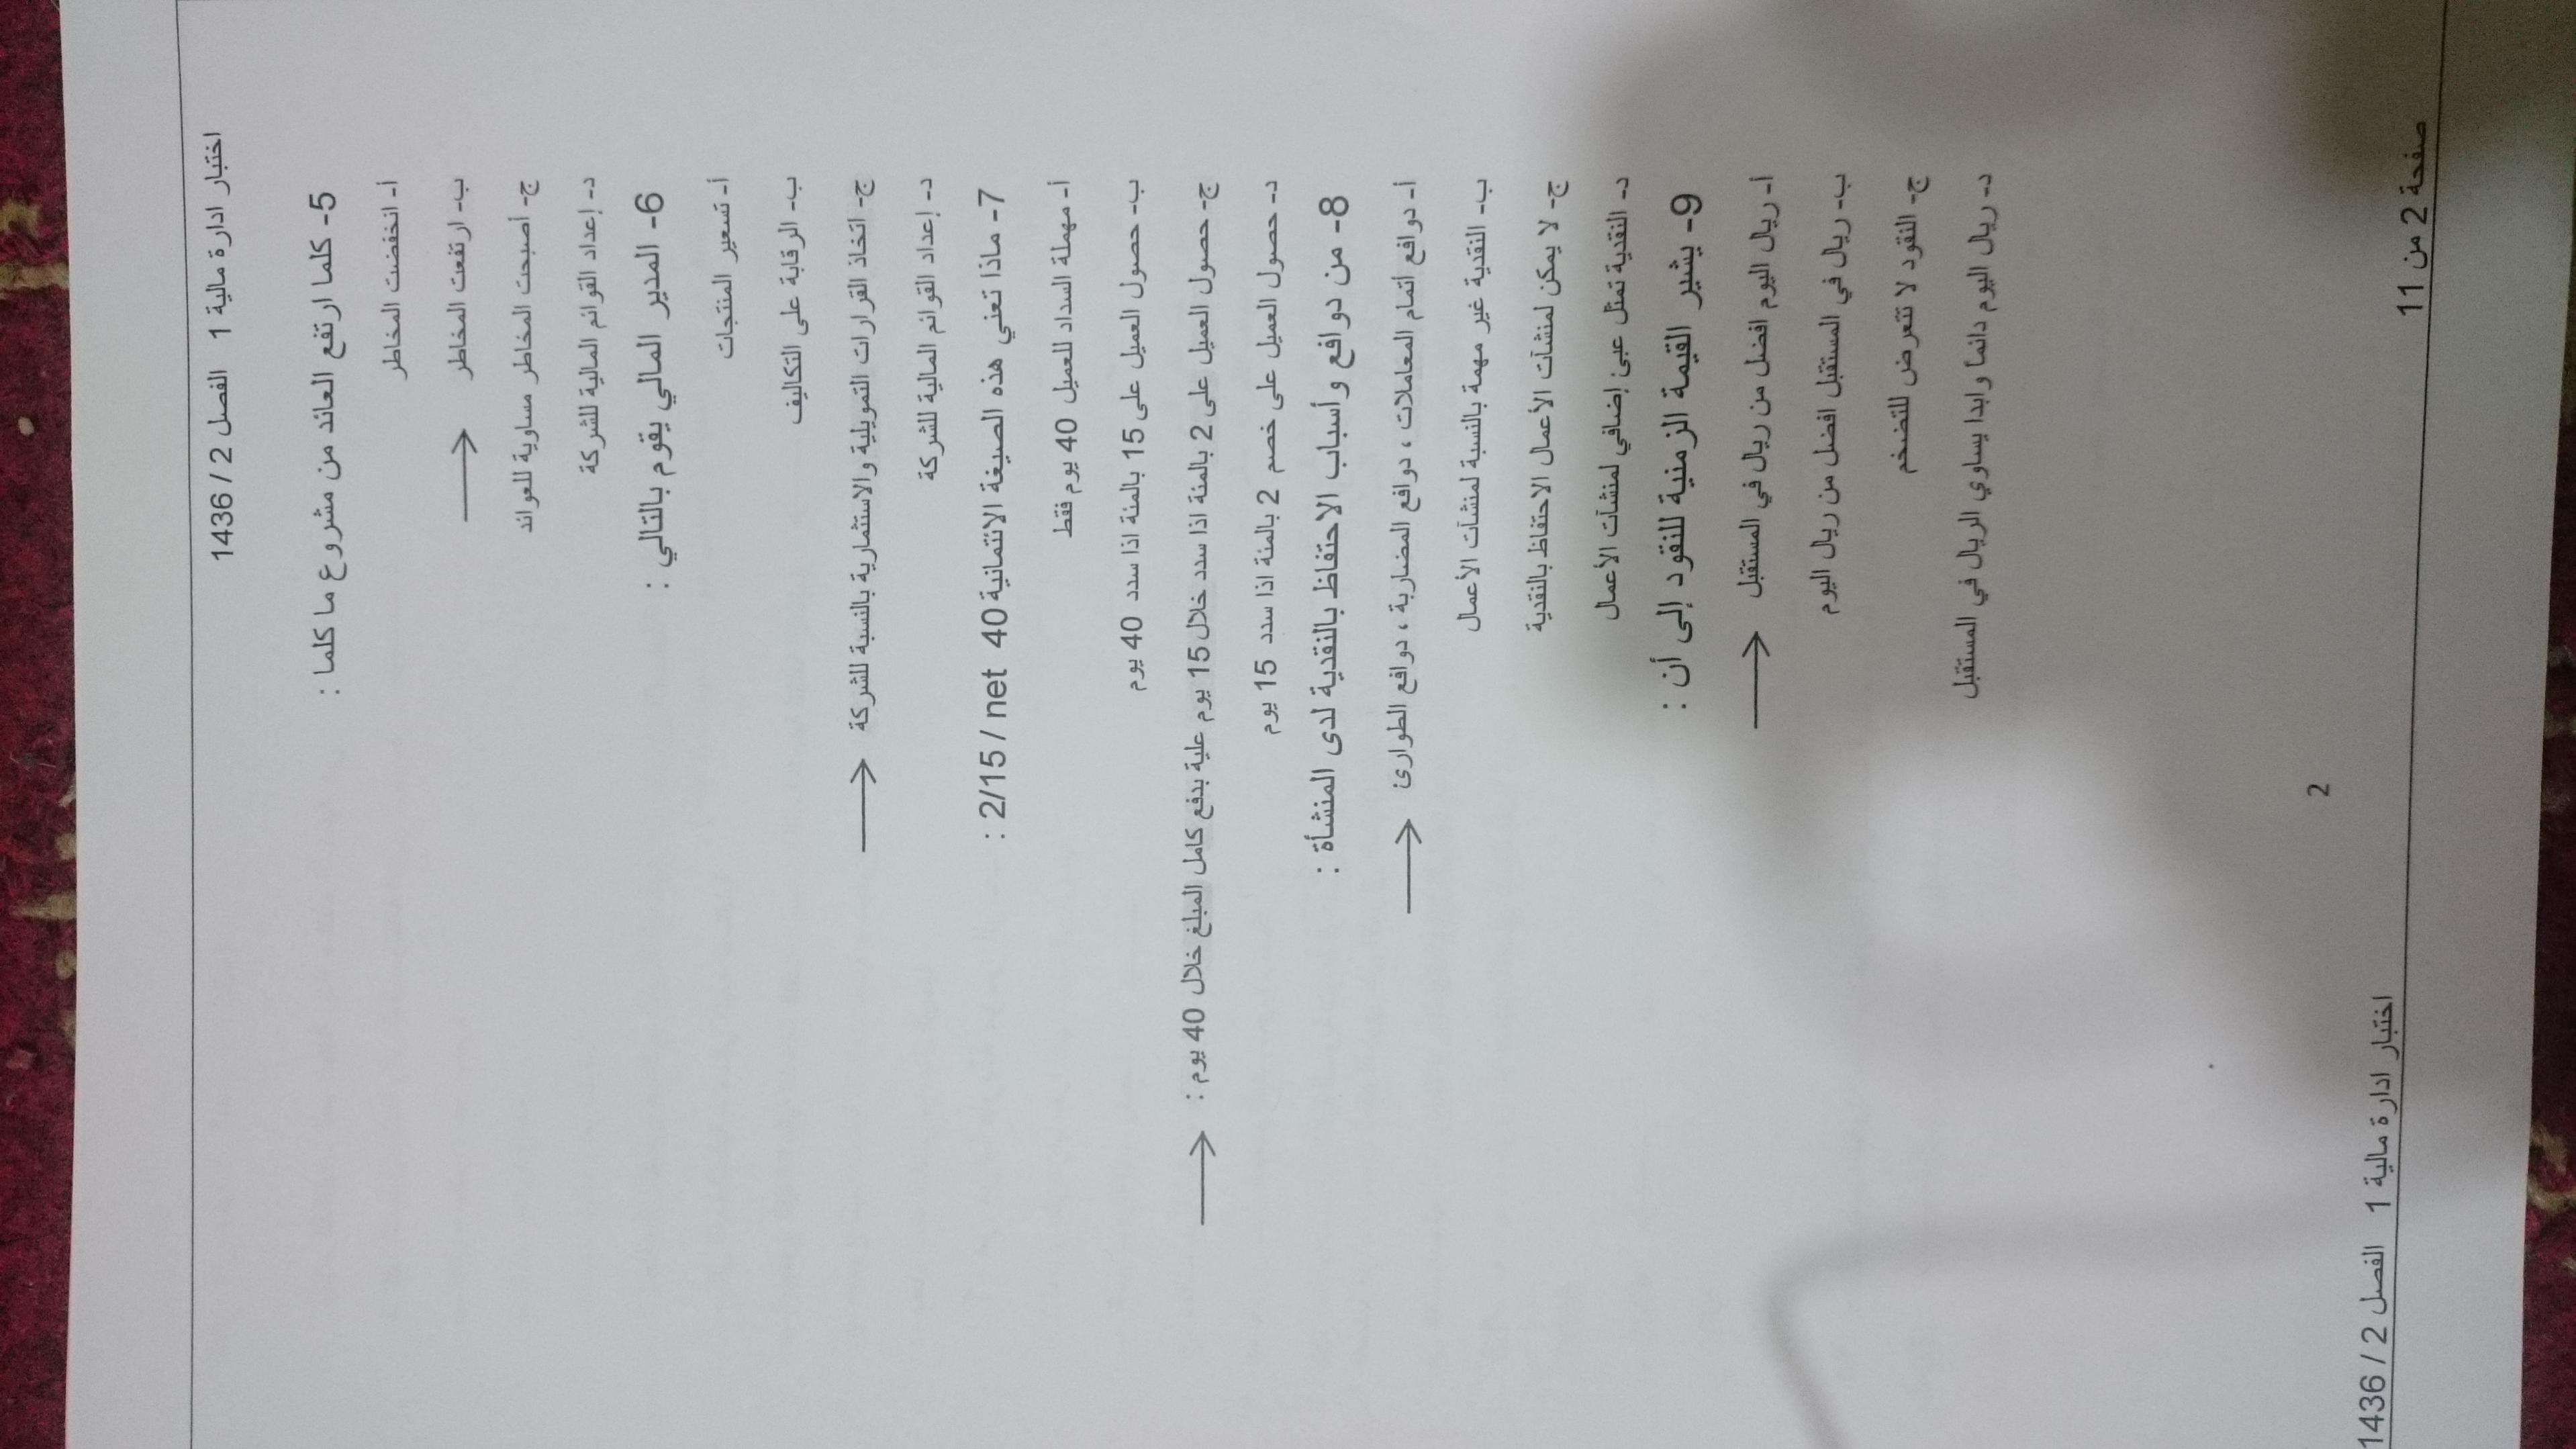 اختبار ادارة مالية 1 الفصل 2 / 1436
5- كلما ارتفع العائد من مشروع ما كلما :
أ- انخفضت المخاطر
ب- ارتفعت المخاطر ←
ج- أصبحت المخاطر مساوية للعوائد
د- إعداد القوائم المالية للشركة
6- المدير المالي يقوم بالتالي :
أ- تسعير المنتجات
ب- الرقابة على التكاليف
ج- اتخاذ القرارات التمويلية والاستثمارية بالنسبة للشركة ←
د- إعداد القوائم المالية للشركة
7- ماذا تعني هذه الصيغة الائتمانية 2/15 / net 40 :
أ- مهملة السداد للعميل 40 يوم فقط
ب- حصول العميل على 15 بالمئة اذا سدد 40 يوم
ج- حصول العميل على 2 بالمئة اذا سدد خلال 15 يوم علية بدفع كامل المبلغ خلال 40 يوم : ←
د- حصول العميل على خصم 2 بالمئة اذا سدد 15 يوم
8- من دوافع وأسباب الاحتفاظ بالنقدية لدى المنشأة :
أ- دوافع اتمام المعاملات ، دوافع المضاربة ، دوافع الطوارئ ←
ب- النقدية غير مهمة بالنسبة لمنشآت الأعمال
ج- لا يمكن لمنشآت الأعمال الاحتفاظ بالنقدية
د- النقدية تمثل عبئ إضافي لمنشآت الأعمال
9- يشير القيمة الزمنية للنقود إلى أن :
أ- ريال اليوم افضل من ريال في المستقبل ←
ب- ريال في المستقبل افضل من ريال اليوم
ج- النقود لا تتعرض للتضخم
د- ريال اليوم دائما وابدا يساوي الريال في المستقبل
2
اختبار ادارة مالية 1 الفصل 2 / 1436
صفحة 2 من 11